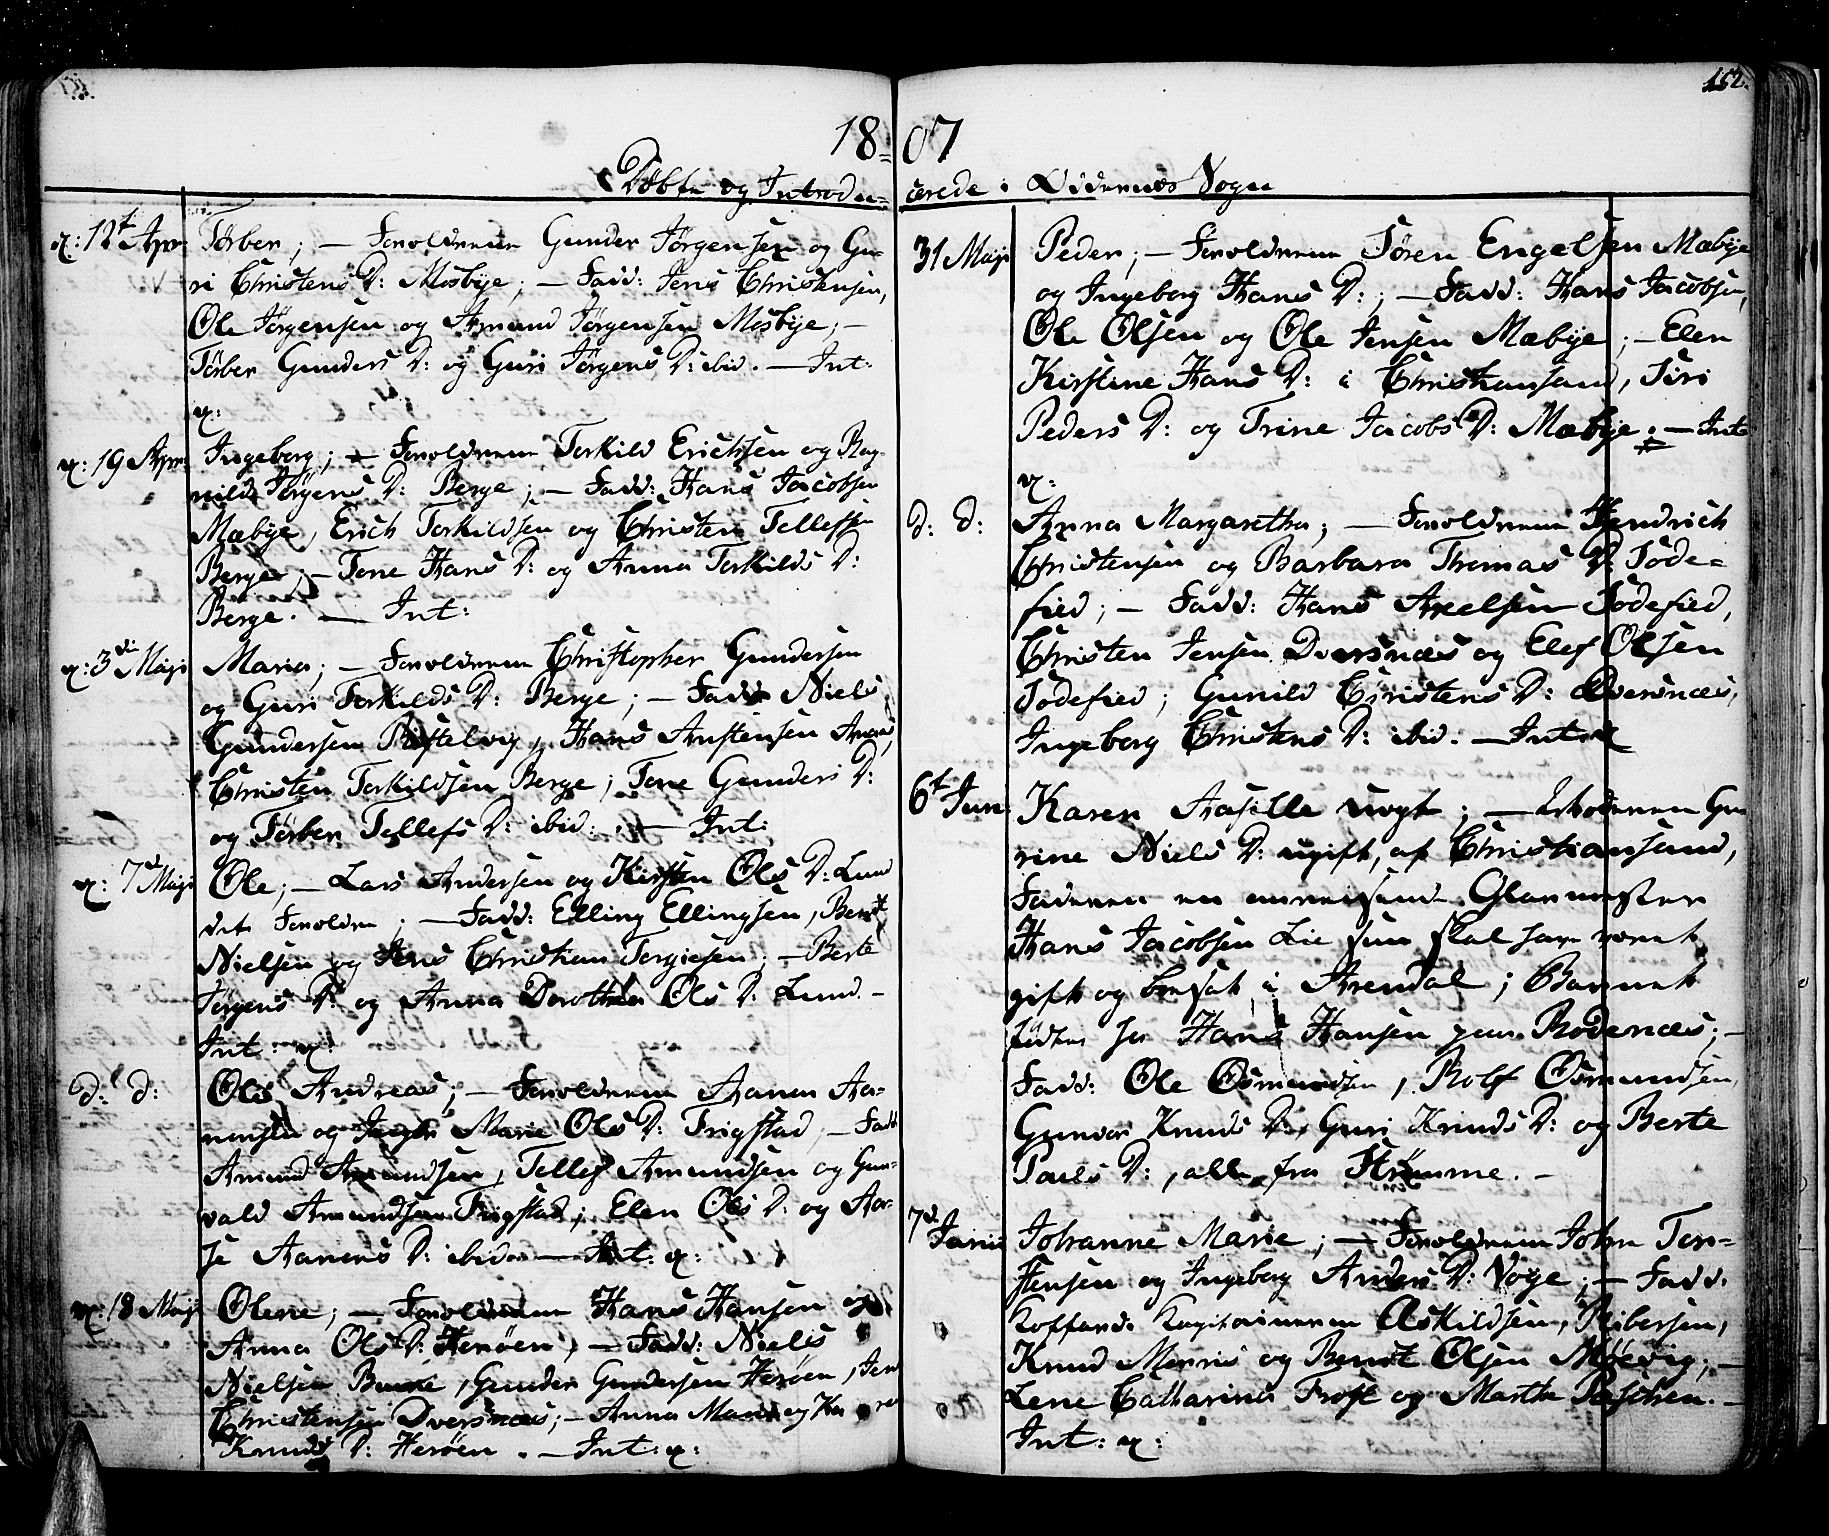 152.
18=07
Döbte og Introdu=cerede i Oddernæs Sogn
x: 12t Apr: Tørber; — Forældrene Gunder Jørgensen og Gu=
ri Christens D: Mosbye; — Fadd: Jens Christensen,
Ole Jørgensen og Amund Jørgensen Mosbye; —
Tørber Gunders D: og Guri Jørgens D: ibid. — Int:
x:
x: 19 Apr: Ingeborg; — Forældrene Terkild Erichsen og Rag=
nild Jörgens D: Berge; — Fadd: Hans Jacobsen
Mæbye, Erich Terkildsen og Christen Tellefsen
Berge; — Tone Hans D: og Anna Terkilds D:
Berge. — Int:
x: 3di Maji Maria; — Forældrene Christopher Gundersen
og Guri Terkilds D: Berge; — Fadd: Niels
Gundersen Hans Anstensen
Christen Terkildsen Berge; Tone Gunders D:
og Tørber Tellefs D: ibid: — Int:
x: 7d Maji Ole; — Lars Andersen og Kirsten Ols D: Lund
det Forældre; — Fadd: Elling Ellingsen, Bent
Nielsen og Jens Christian Tergiesen; — Berte
Jörgens D: og Anna Dorothea Ols D: Lund. —
Int: x:
d: d: Ole Andreas; — Forældrene Aanen Aa=
nensen og Marie Ols D: Frigstad, — Fadd:
Amund Amundsen, Tellef Amundsen og Gun=
vald Amundsen Frigstad; Elen Ols D: og Aa=
se Aanens D: ibid. — Int: x:
x: 18 Maji Olene; — Forældrene Hans Hansen og
Anna Ols D: Herøen, — Fadd: Niels
Nielsen Gunder Gundersen Herøen, Jens
Christensen Dversnæs; — Anna Marie og Karen
Knuds D: Herøen. — Int: x:
31 Maji Peder; — Forældrene Søren Engelsen Mæbye
og Ingeborg Hans D:; — Fadd: Hans Jacobsen,
Ole Olsen og Ole Jensen Mæbye; — Elen
Kirstine Hans D: i Christiansand, Siri
Peders D: og Trine Jacobs D: Mæbye. — Int:
x:
d: d: Anna Margaretha; — Forældrene Hendrich
Christensen og Barbara Thomas D: Sode=
fied; — Fadd: Hans Axelsen Sodefied,
Christen Jensen Dversnæs og Elef Olsen
Sodefied; Gunild Christens D: Dversnæs,
Ingeborg Christens D: ibid: — Int: x
6t Jun: Karen Aasille uægt; — Moderen Gu
rine Niels D: ugift, af Christiansand,
Faderen en Glarmester
Hans Jacobsen Lie som skal have været
gift og bosat i Arendal; Barnet
födtes hos Hans Hansen paa Rodenæs; —
Fadd: Ole Osmundsen, Rolf Osmundsen,
Gunvor Knuds D:, Guri Knuds D: og Berte
Pouls D:, alle fra Strømme. —
7d. Junii Johanne Marie; — Forældrene John Ter=
jensen og Ingeborg Anders D: Voge; — Fadd:
Koffardi Kapitainerne Askildsen, Ribersen,
Knud Mørris og Bendt Olsen Møevig; —
Lene Catharina Frost og Marthe Paschen. —
Int: x: